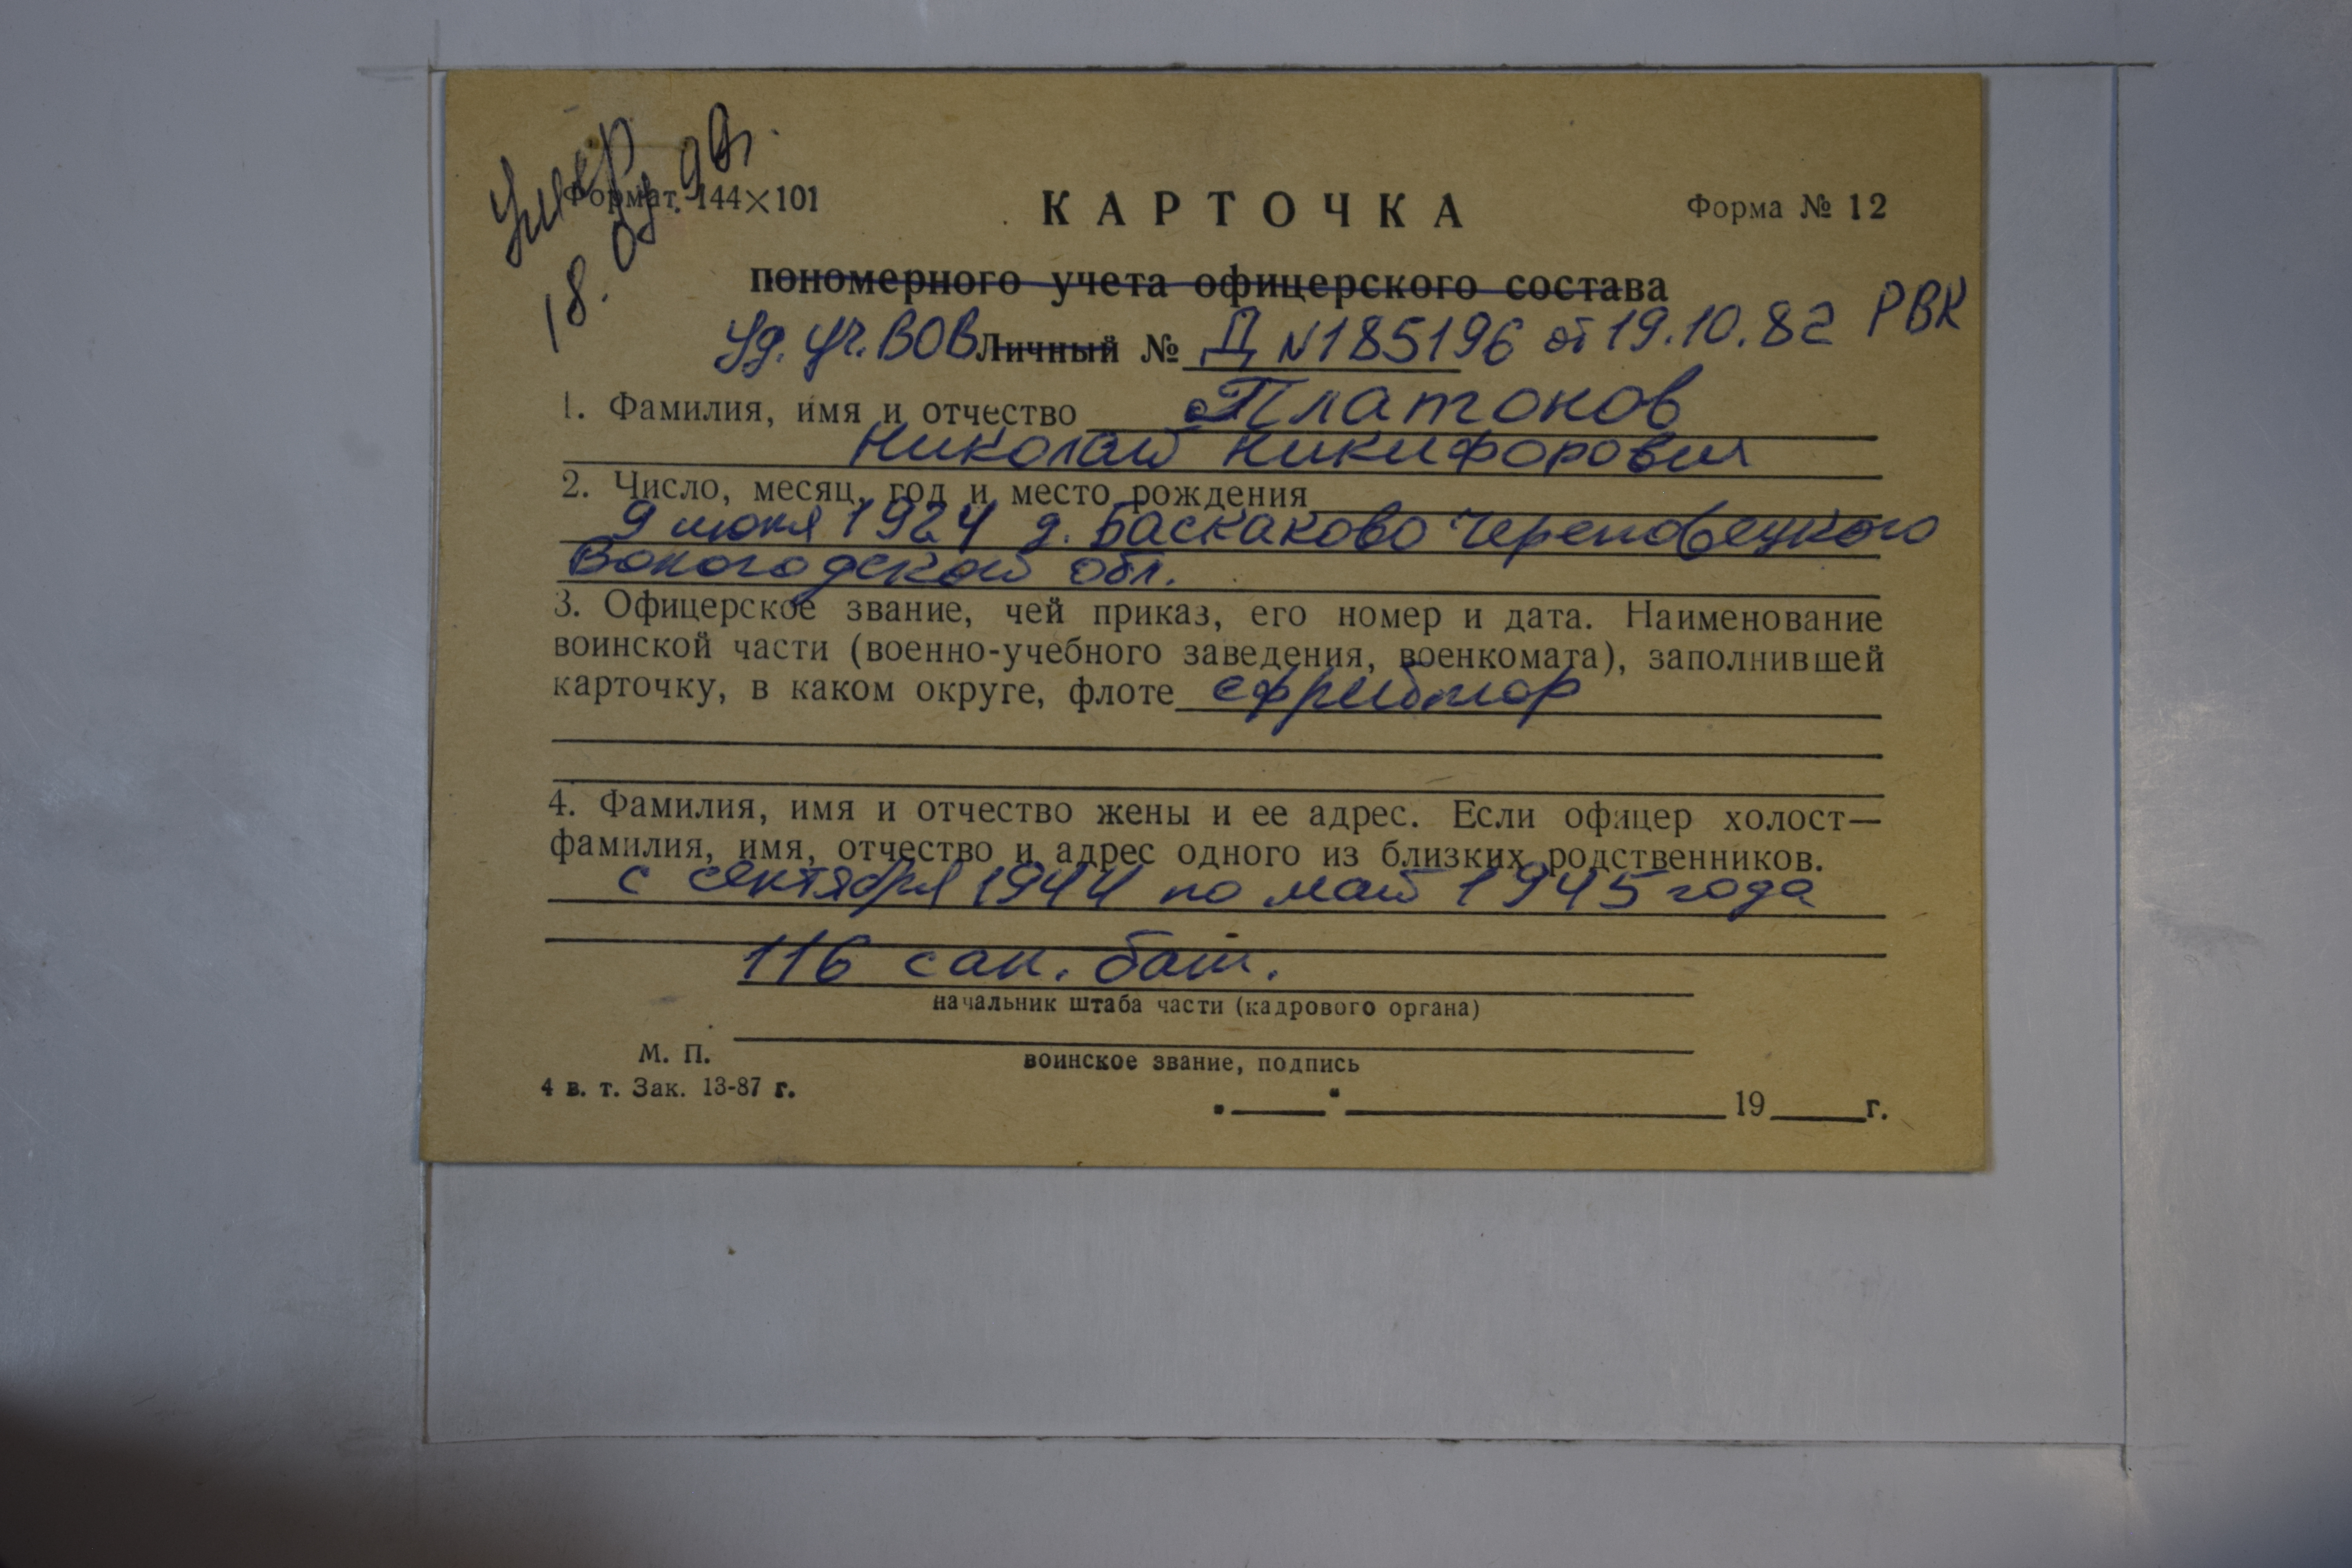 Умер
18. 04. 90г.
Формат. 144×101
КАРТОЧКА
Форма № 12
пономерного учета офицерского состава
Уд. уч. ВОВ Личный № Д N185196 от 19.10.82 РВК
1. Фамилия, имя и отчество Платонов
Николай Никифорович
2. Число, месяц, год и место рождения
9 июня 1924 д. Баскаково Череповецкого
Вологодской обл.
3. Офицерское звание, чей приказ, его номер и дата. Наименование
воинской части (военно-учебного заведения, военкомата), заполнившей
карточку, в каком округе, флоте ефрейтор
4. Фамилия, имя и отчество жены и ее адрес. Если офицер холост—
фамилия, имя, отчество и адрес одного из близких родственников.
с сентября 1944 по май 1945 года
116 сан. бат.
начальник штаба части (кадрового органа)
М. П.
воинское звание, подпись
4 в. т. Зак. 13-87 г.
19 г.